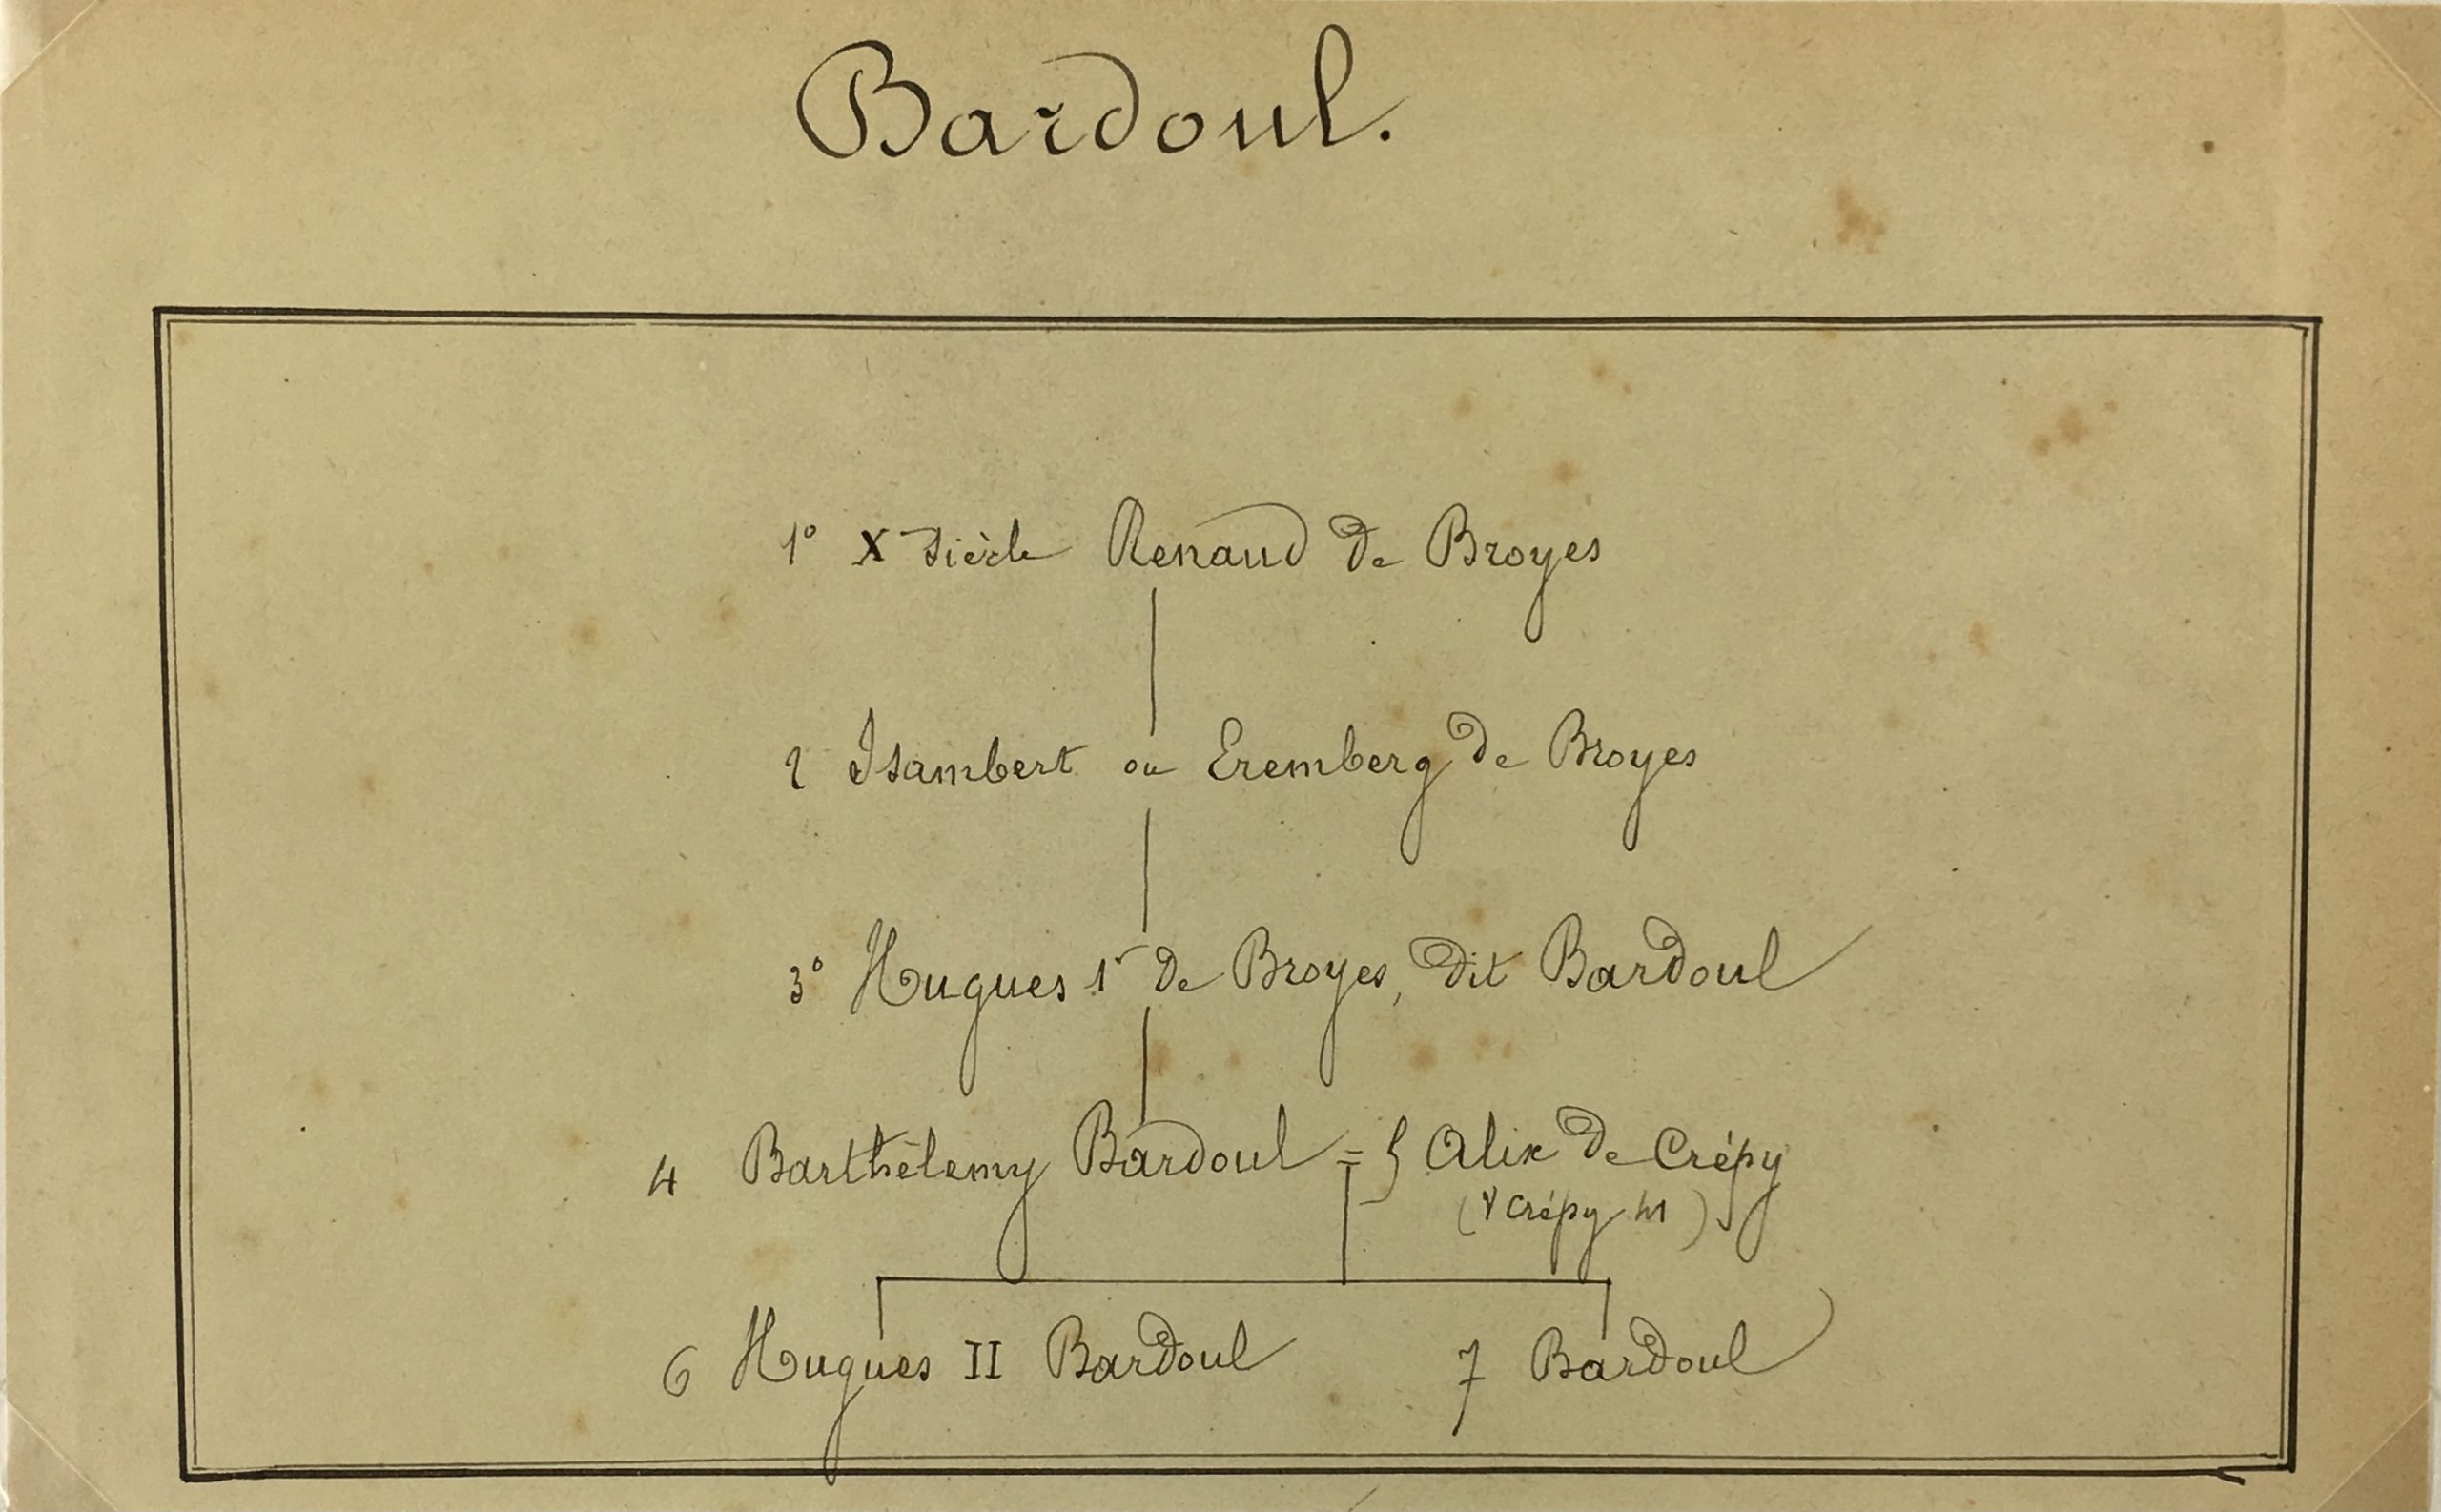 Bardoul.
1° X siècle Renaud de Broyes
2 Isambert ou Eremberg de Broyes
3° Hugues 1r de Broyes, dit Bardoul
4 Barthélemy Bardoul = Alix de Crépy
(V Crépy)
6 Hugues II Bardoul 7 Bardoul